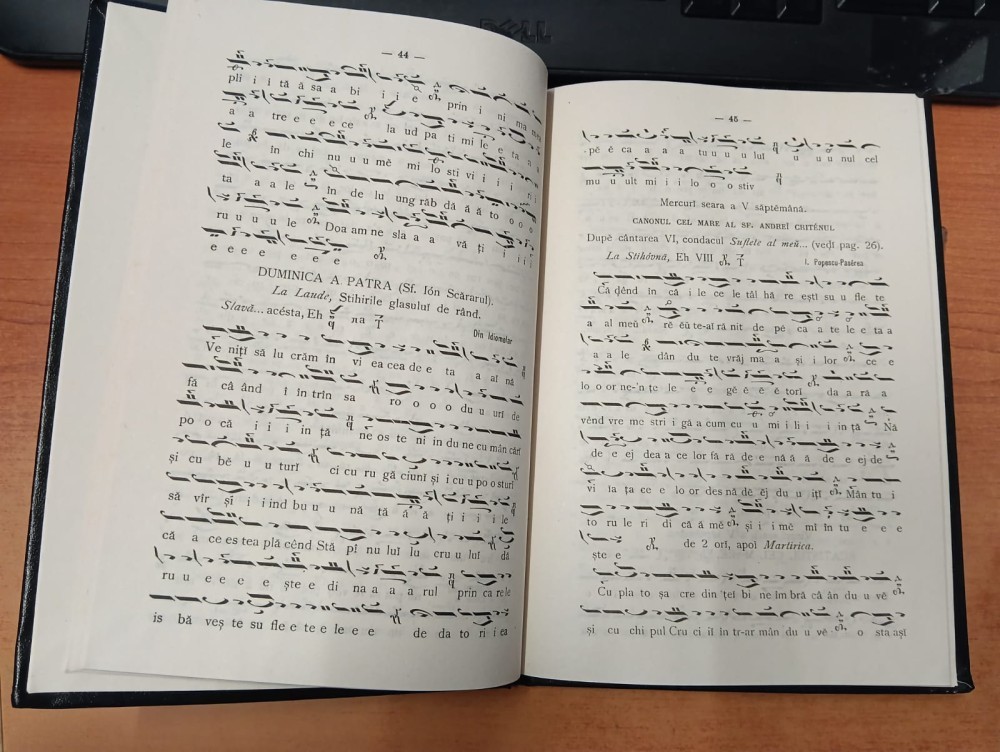 DELL
— 44 —
pli i i tă ă sa a bi i i e prin i ni ma mea
a a tre e e e ce la ud pa ti mi le e ta a
le în chi nu u u mĕ mi lo sti vi i i i ri i
ta a a le în de lu ung răb dă ă ă to o o o
ru u u u le Doa am ne sla a a vă ți i i i
e e e e e e e e
DUMINICA A PATRA (Sf. Ión Scărarul).
La Laude, Stihirile glasuluĭ de rând.
Slavă... acésta, Eh na
Din Idiomelar
Ve nițĭ să lu crăm în vi ea cea de e ta a al nă
fă câ ând i în trîn sa ro o o o du u urĭ de
po o că i i i in ță ne os te ni in du ne cu mân cărĭ
și cu bĕ u u turĭ ci cu ru gă ciunĭ și i cu u po o sturĭ
să vîr și i i ind bu u u nă tă ă ă ți i i i le
că a ce es tea plă cênd Stă pî nu luĭ lu cru u luĭ dă
ru u e e e e ște e di na a a a rul prin ca re le
is bă veș te su fle e te e le e e de da to ri i ea
— 45 —
pĕ ĕ ca a a a tu u u u luĭ u u u nul cel
mu u ult mi i i lo o o stiv
Mercurĭ seara a V săptĕmână.
CANONUL CEL MARE AL SF. ANDREĬ CRITÉNUL
După cântarea VI, condacul Suflete al meŭ... (veḑĭ pag. 26).
La Stihóvnă, Eh VIII
I. Popescu-Pasĕrea
Că ḑênd în câ i le ce le tâl hă re eștĭ su u fle te
a al meŭ ré ĕŭ te-aĭ ră nit de pĕ ca a te le e ta a
a a le dân du te vrăj ma a și i lor ce e
lo o or ne-'n țe le é e gĕ ĕ ĕ torĭ da a ră a
vênd vre me stri i gă a cum cu u mi i li i i in ță Nă
de e ej dea a ce lor fă ră de e nă ă ă de e ej de
vi ia ța ce e lo or des nă de ĕj du u ițĭ Mân tu i
to ru le ri di că ă mĕ și i i mĕ mîn tu e e e
ște e de 2 orĭ, apoĭ Martirica.
Cu pla to șa cre din 'țeĭ bi ne îm bră că ân du u vĕ
și cu chi pul Cru ci iĭ în tr-ar mân du u vĕ o sta așĭ